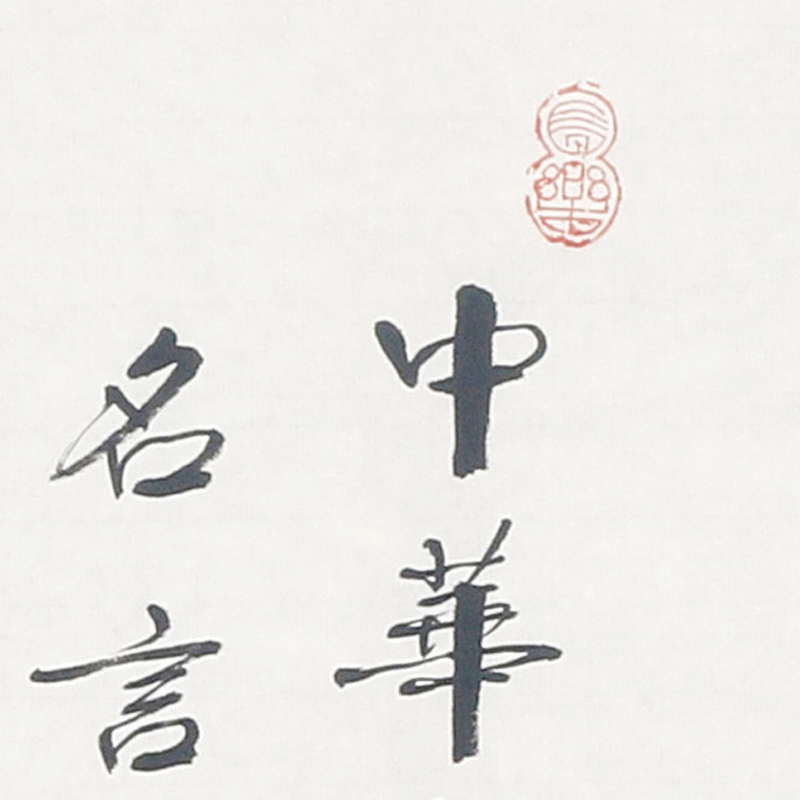 中華
名言